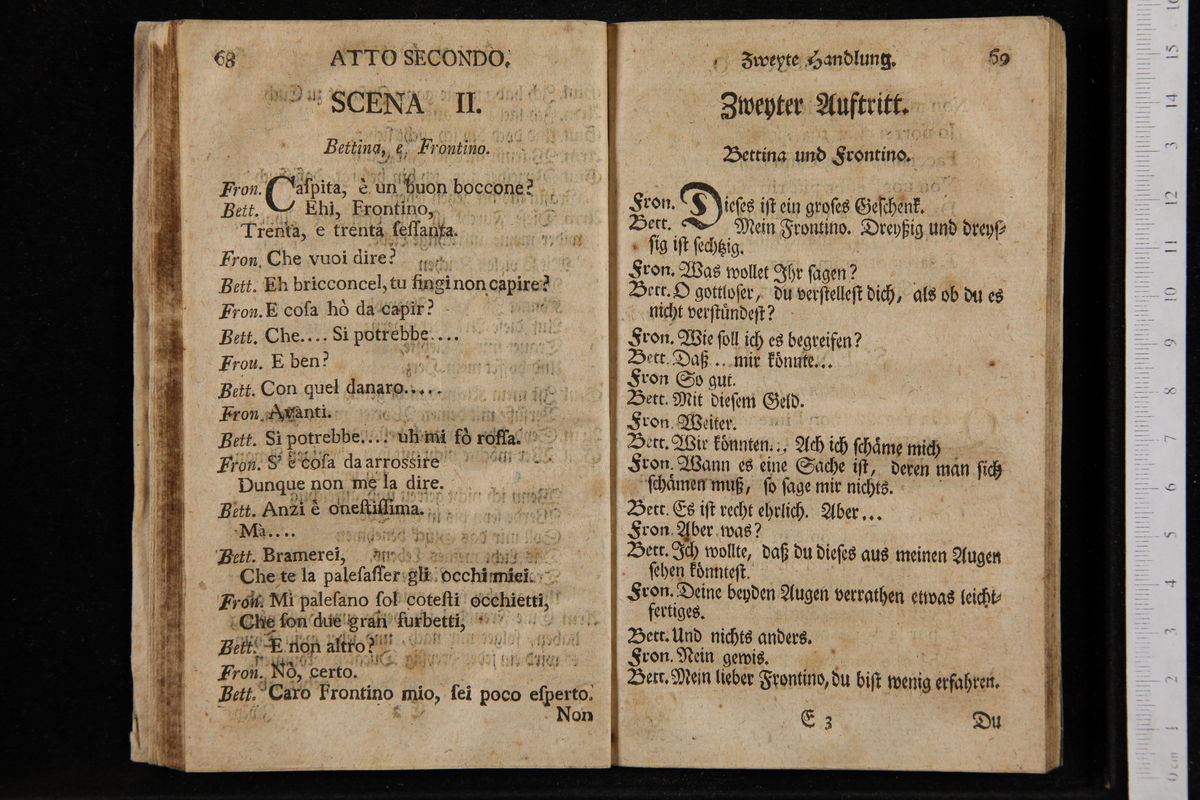 68 ATTO SECONDO.
SCENA II.
Bettina, e Frontino.
Fron. Caſpita, è un buon boccone?
Bett. Ehi, Frontino,
Trenta, e trenta ſeſſanta.
Fron. Che vuoi dire?
Bett. Eh bricconcel, tu fingi non capire?
Fron. E coſa hò da capir?
Bett. Che.... Si potrebbe....
Frou. E ben?
Bett. Con quel danaro.....
Fron. Avanti.
Bett. Si potrebbe.... uh mi fò roſſa.
Fron. S' è coſa da arroſſire
Dunque non me la dire.
Bett. Anzi è oneſtiſſima.
Mà....
Bett. Bramerei,
Che te la paleſaſſer gli occhi miei.
Fron. Mi paleſano ſol coteſti occhietti,
Che ſon due gran furbetti,
Bett. E non altro?
Fron. Nò, certo.
Bett. Caro Frontino mio, ſei poco eſperto.
Non
Zweyte Handlung. 69
Zweyter Auftritt.
Bettina und Frontino.
Fron. Dieſes iſt ein groſes Geſchenk.
Bett. Mein Frontino. Dreyßig und dreyſ-
ſig iſt ſechtzig.
Fron. Was wollet Ihr ſagen?
Bett. O gottloſer, du verſtelleſt dich, als ob du es
nicht verſtündeſt?
Fron. Wie ſoll ich es begreifen?
Bett. Daß .. mir könnte...
Fron So gut.
Bett. Mit dieſem Geld.
Fron. Weiter.
Bett. Wir könnten... Ach ich ſchäme mich
Fron. Wann es eine Sache iſt, deren man ſich
ſchämen muß, ſo ſage mir nichts.
Bett. Es iſt recht ehrlich. Aber...
Fron. Aber was?
Bett. Ich wollte, daß du dieſes aus meinen Augen
ſehen könnteſt.
Fron. Deine beyden Augen verrathen etwas leicht-
fertiges.
Bett. Und nichts anders.
Fron. Nein gewis.
Bett. Mein lieber Frontino, du biſt wenig erfahren.
E 3 Du